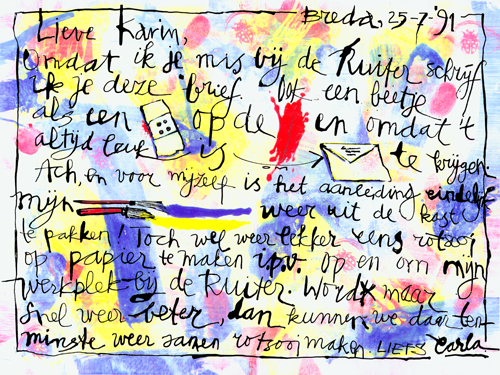 Breda, 25-7-'91
Lieve Karin,
Omdat ik je mis bij de Ruiter schrijf
ik je deze brief. Let een beetje
als een op de en omdat 't
altijd leuk is te krijgen.
Ach, en voor mijzelf is het aanleiding eindelijk
mijn weer uit de kast
te pakken! Toch wel weer lekker eens rotzooi
op papier te maken i.p.v. op en om mijn
werkplek bij de Ruiter. Wordt maar
snel weer beter, dan kunnen we daar ten-
minste weer samen rotsooi maken. LIEFS Carla